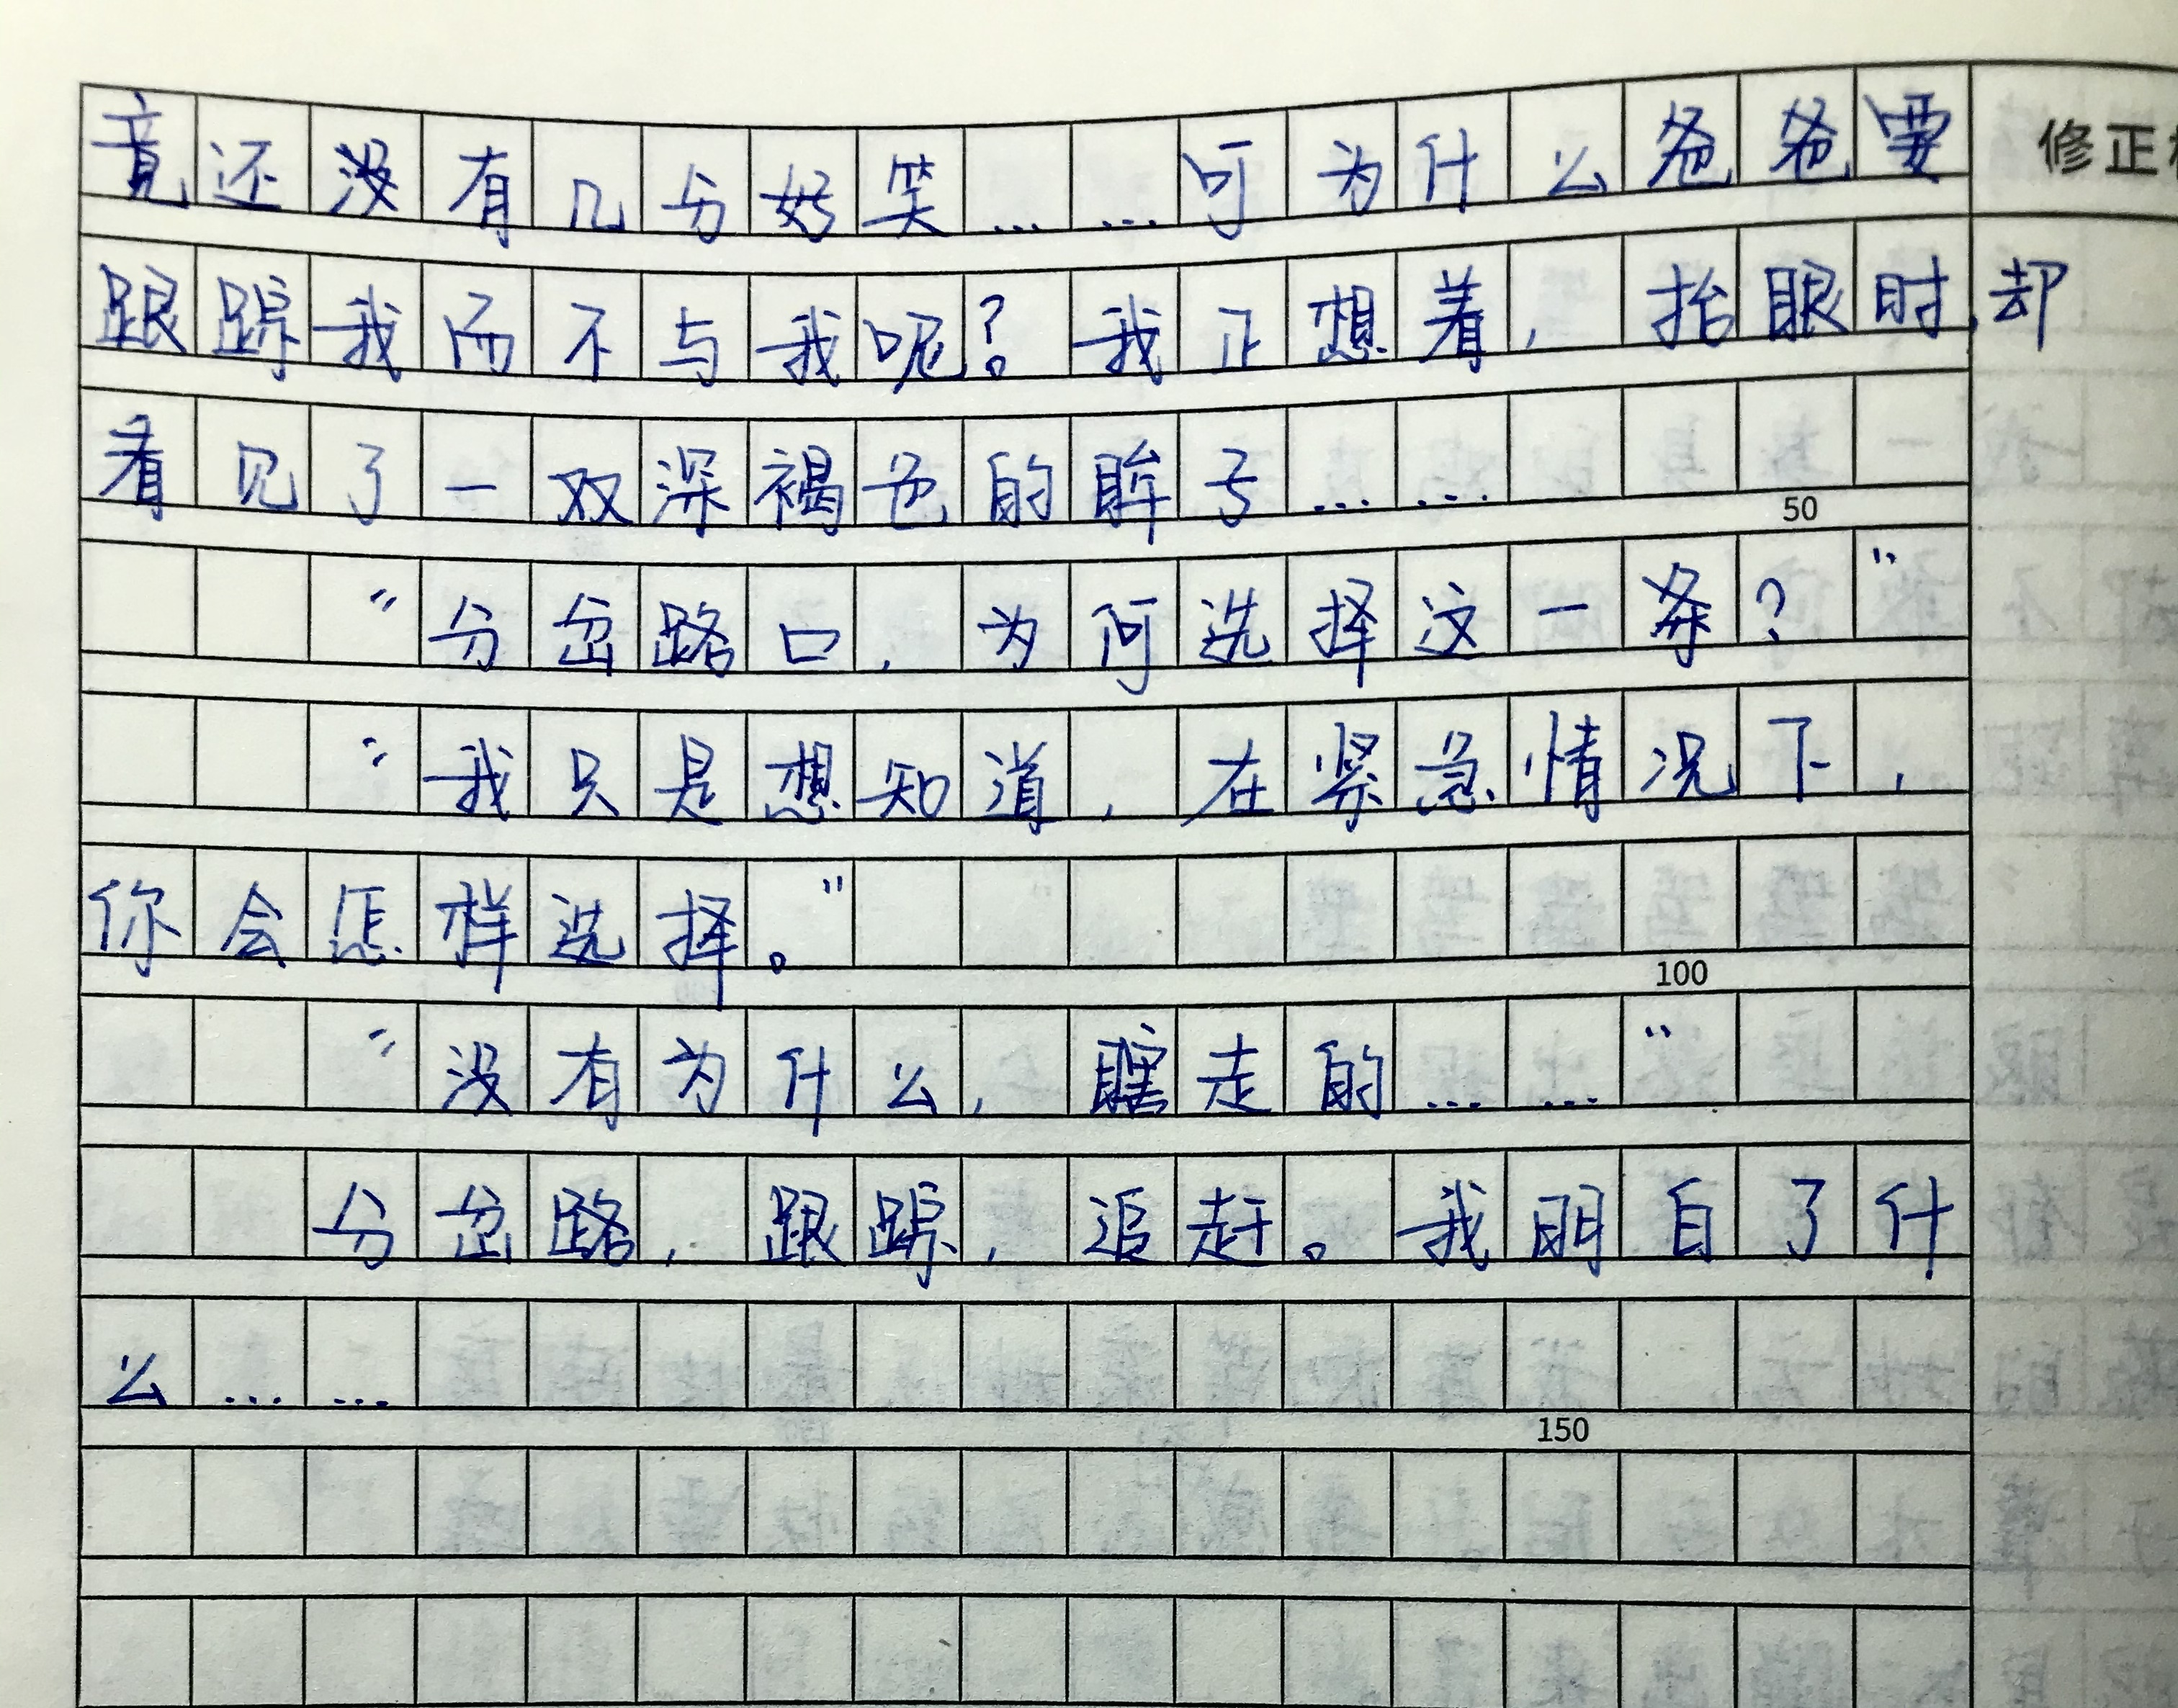 竟还没有几分好笑……可为什么爸爸要
修正
跟踪我而不与我呢？我正想着，抬眼时，却
看见了一双深褐色的眸子……
50
“分岔路口，为何选择这一条？”
“我只是想知道，在紧急情况下，
你会怎样选择。”
100
“没有为什么，瞎走的……”
分岔路，跟踪，追赶。我明白了什
么……
150